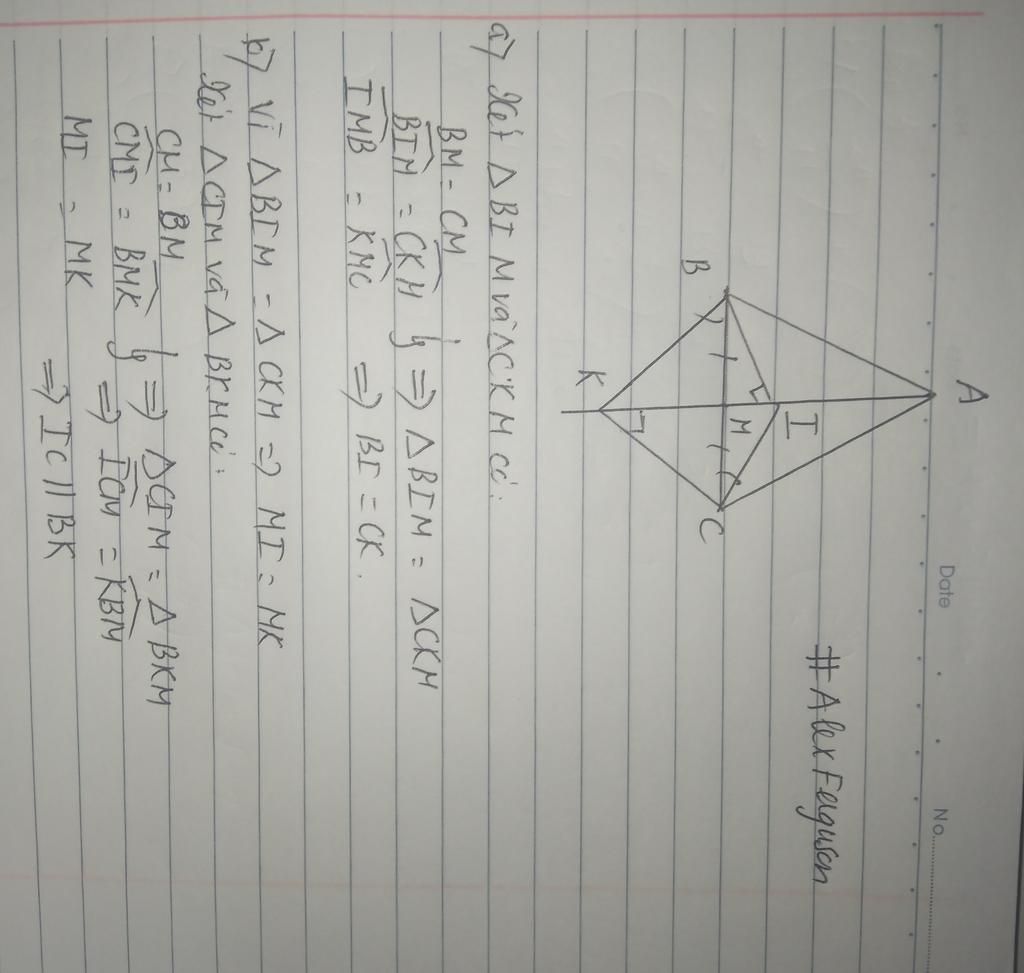 Date
No.
#AlexFerguson
A
I
B
M
C
K
a) Xét △BIM và △CKM có:
BM = CM
BIM = CKM } ⇒ △BIM = △CKM
IMB = KMC ⇒ BI = CK.
b) Vì △BIM = △CKM ⇒ MI = MK
Xét △CIM và △BKM có:
CM = BM
CMI = BMK } ⇒ △CIM = △BKM
MI = MK ⇒ ICM = KBM
⇒ IC // BK